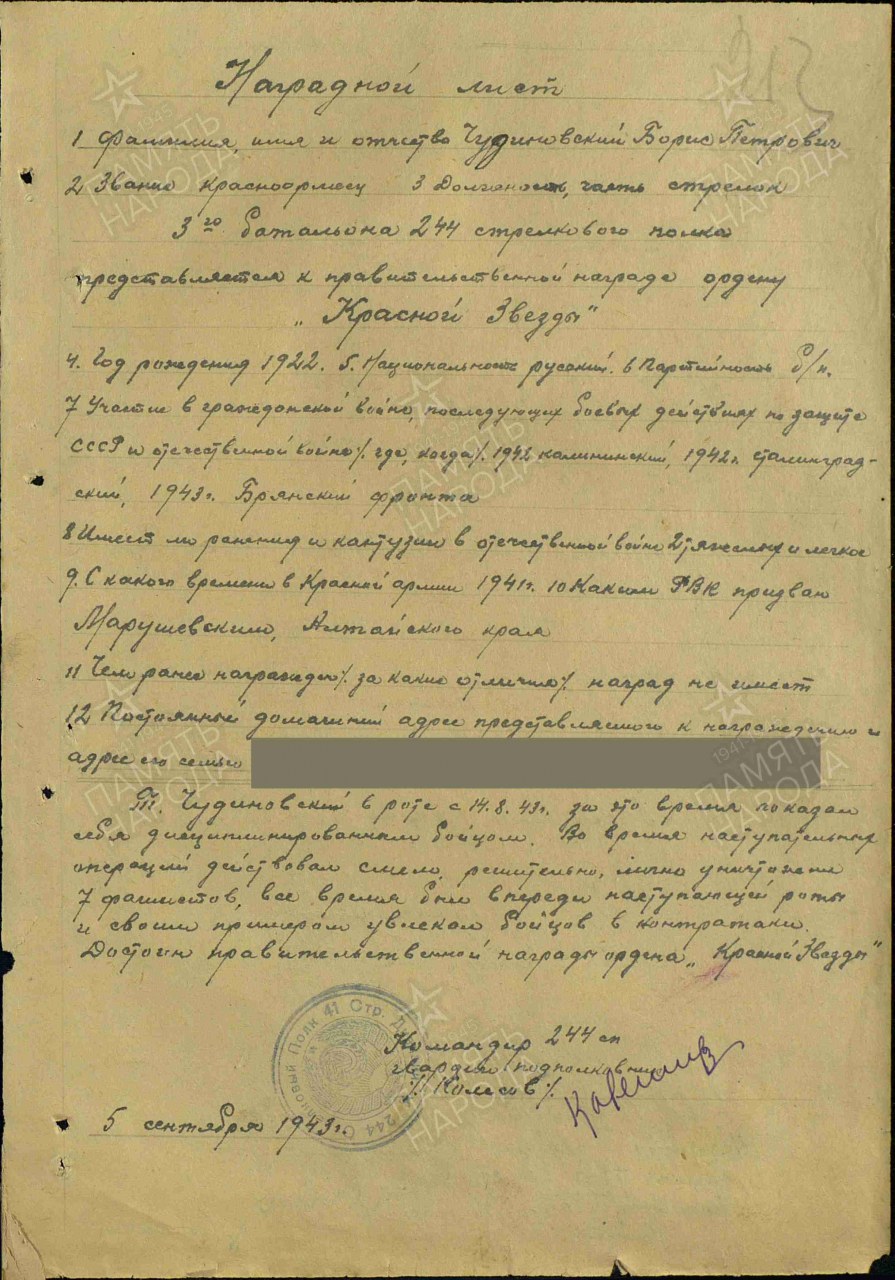 213
Наградной лист
1 Фамилия, имя и отчество Чудиновский Борис Петрович
2 Звание красноармеец 3 Должность, часть стрелок
3го батальона 244 стрелкового полка
представляется к правительственной награде ордену
„Красной Звезды"
4. Год рождения 1922. 5. Национальность русский. 6 Партийность б/п.
7 Участие в гражданской войне, последующих боевых действиях по защите
СССР и отечественной войне /. где, когда /. 1942 калининский, 1942г. сталинград-
ский, 1943г. Брянский фронта
8 Имеет ли ранения и контузии в отечественной войне 2 тяжелых и легкое
9. С какого времени в Красной армии 1941г. 10 Каким РВК призван
Марушевским, Алтайского края
11 Чем ранее награжден /. за какие отличия /. наград не имеет
12 Постоянный домашний адрес представляемого к награждению и
адрес его семьи
Т. Чудиновский в роте с 14.8.43г. за это время показал
себя дисциплинированным бойцом. Во время наступательных
операций действовал смело, решительно, лично уничтожил
7 фашистов, все время был впереди наступающей роты
и своим примером увлекал бойцов в контратаки.
Достоин правительственной награды ордена „Красной Звезды"
Командир 244 сп
гвардии подполковник
/. Колесов /.
5 сентября 1943г.
244 Стрелковый Полк 41 Стр.
ПАМЯТЬ НАРОДА